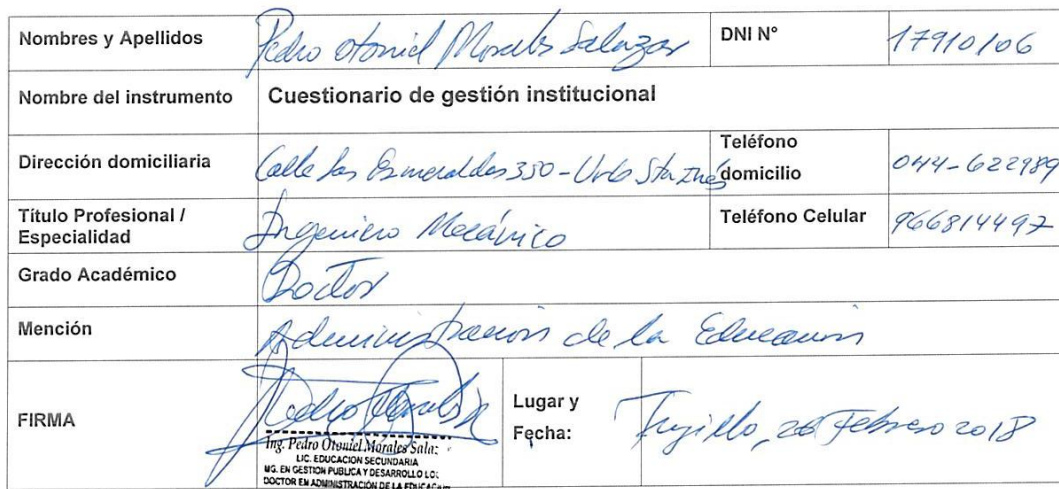 Nombres y Apellidos Pedro Otoniel Morales Salazar DNI N° 17910106
Nombre del instrumento Cuestionario de gestión institucional
Dirección domiciliaria Calle Las Esmeraldas 350 - Urb Sta Inés Teléfono domicilio 044-622989
Título Profesional / Especialidad Ingeniero Mecánico Teléfono Celular 966814497
Grado Académico Doctor
Mención Administración de la Educación
FIRMA Lugar y Fecha: Trujillo, 26 Febrero 2018
Ing. Pedro Otoniel Morales Sala
LIC. EDUCACION SECUNDARIA
MG. EN GESTION PUBLICA Y DESARROLLO LOC
DOCTOR EN ADMINISTRACIÓN DE LA EDUCACIÓN